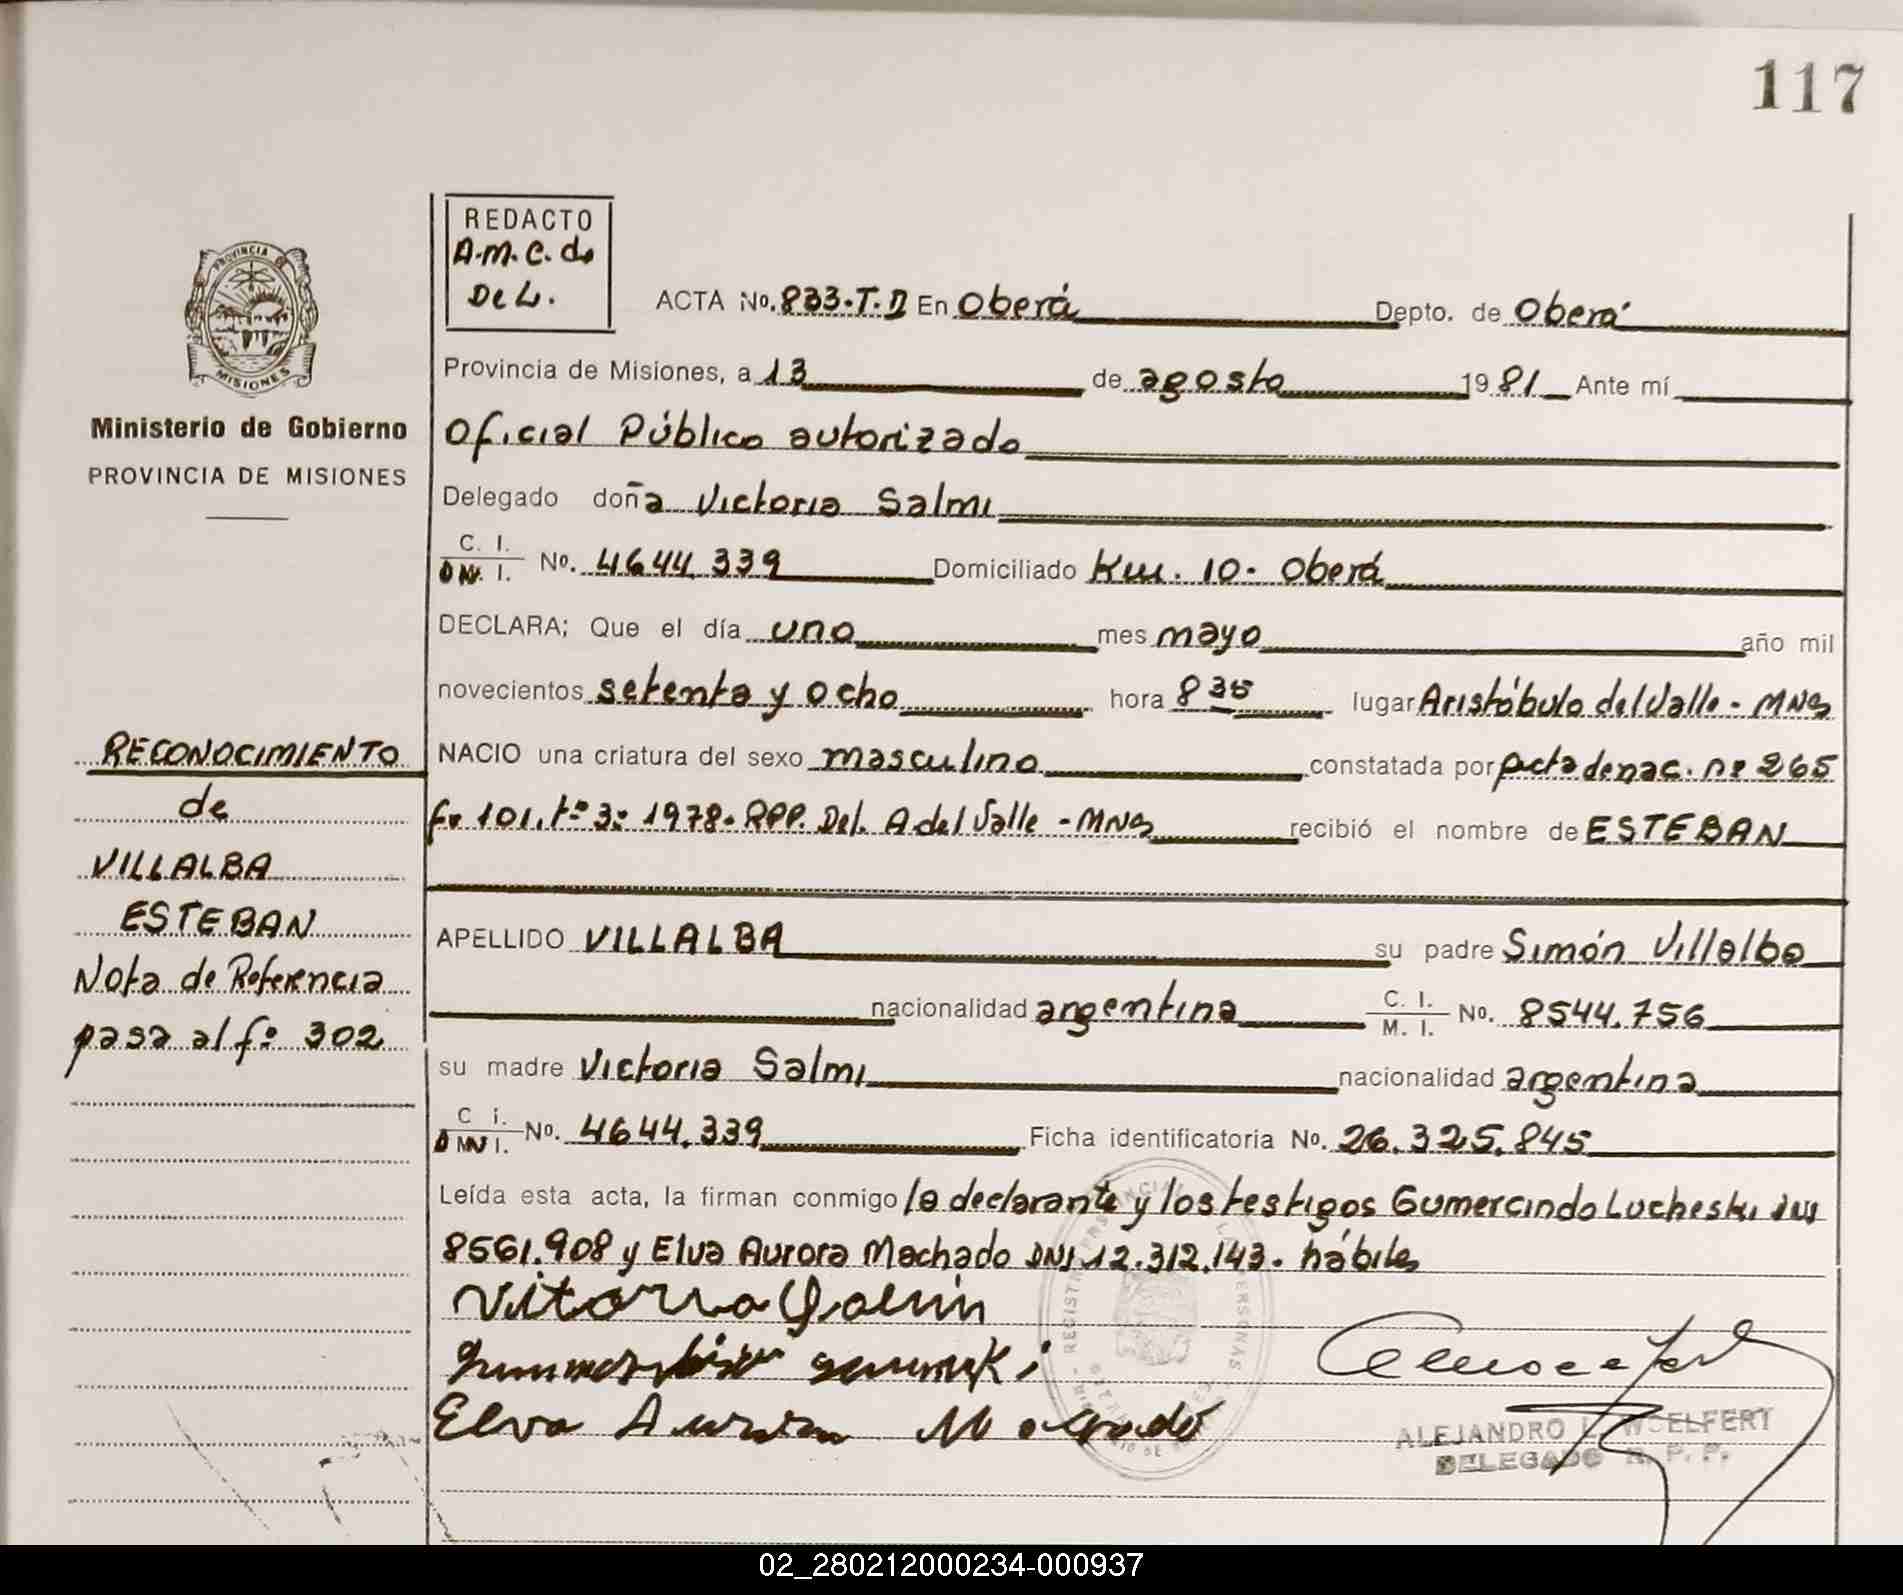 117
REDACTO
A.M.C. de
De L.
PROVINCIA DE
MISIONES
ACTA No. 833-T-D En Oberá Depto. de Oberá
Provincia de Misiones, a 13 de agosto 1981 Ante mí
Ministerio de Gobierno
PROVINCIA DE MISIONES
Oficial Público autorizado
Delegado doña Victoria Salmi
C. I. No. 4644.339 Domiciliado Km. 10- Oberá
DECLARA; Que el día uno mes mayo año mil
novecientos setenta y ocho hora 8 35 lugar Aristóbulo del Valle - MNS
NACIO una criatura del sexo masculino constatada por acta de nac. nº 265
fº 101. tº 3º 1978. RPP. Del. A del Valle - MNS recibió el nombre de ESTEBAN
RECONOCIMIENTO
de
VILLALBA
ESTEBAN
Nota de Referencia
pasa al fº 302
APELLIDO VILLALBA su padre Simón Villalba
nacionalidad argentina C. I. M. I. No. 8544.756
su madre Victoria Salmi nacionalidad argentina
C I. No. 4644.339 Ficha identificatoria No. 26.325.845
Leída esta acta, la firman conmigo la declarante y los testigos Gumercindo Lucheski DNI
8561.908 y Elva Aurora Machado DNI 12.312.143. hábiles
Elva
ALEJANDRO L. WOELFERT
DELEGADO R. P. P.
02_280212000234-000937